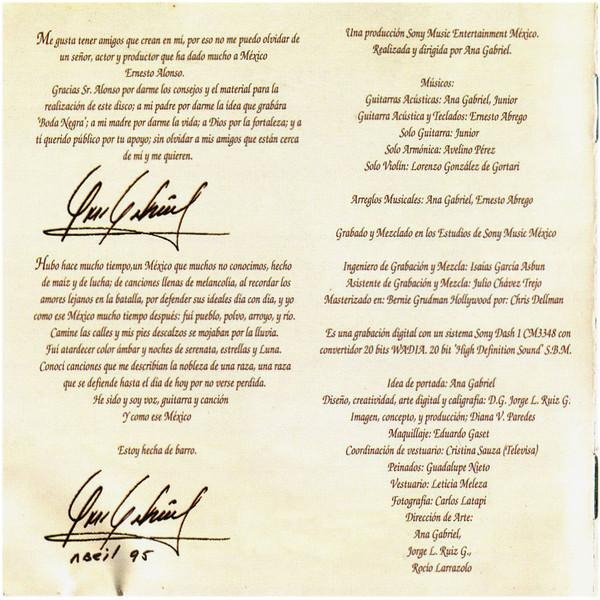 Me gusta tener amigos que crean en mi, por eso no me puedo olvidar de
un señor, actor y productor que ha dado mucho a México
Ernesto Alonso.
Gracias Sr. Alonso por darme los consejos y el material para la
realización de este disco; a mi padre por darme la idea que grabára
'Boda Negra'; a mi madre por darme la vida; a Dios por la fortaleza; y a
tí querido público por tu apoyo; sin olvidar a mis amigos que están cerca
de mí y me quieren.
Ana Gabriel
Hubo hace mucho tiempo, un México que muchos no conocimos, hecho
de maíz y de lucha; de canciones llenas de melancolía, al recordar los
amores lejanos en la batalla, por defender sus ideales día con día, y yo
como ese México mucho tiempo después: fuí pueblo, polvo, arroyo, y río.
Camine las calles y mis pies descalzos se mojaban por la lluvia.
Fui atardecer color ámbar y noches de serenata, estrellas y Luna.
Conocí canciones que me describían la nobleza de una raza, una raza
que se defiende hasta el día de hoy por no verse perdida.
He sido y soy voz, guitarra y canción
Y como ese México
Estoy hecha de barro.
Ana Gabriel
Abril 95
Una producción Sony Music Entertainment México.
Realizada y dirigida por Ana Gabriel.
Músicos:
Guitarras Acústicas: Ana Gabriel, Junior
Guitarra Acústica y Teclados: Ernesto Abrego
Solo Guitarra: Junior
Solo Armónica: Avelino Pérez
Solo Violín: Lorenzo González de Gortari
Arreglos Musicales: Ana Gabriel, Ernesto Abrego
Grabado y Mezclado en los Estudios de Sony Music México
Ingeniero de Grabación y Mezcla: Isaías García Asbun
Asistente de Grabación y Mezcla: Julio Chávez Trejo
Masterizado en: Bernie Grudman Hollywood por: Chris Dellman
Es una grabación digital con un sistema Sony Dash 1 CM3348 con
convertidor 20 bits WADIA. 20 bit 'High Definition Sound' S.B.M.
Idea de portada: Ana Gabriel
Diseño, creatividad, arte digital y caligrafía: D.G. Jorge L. Ruiz G.
Imagen, concepto, y producción; Diana V. Paredes
Maquillaje: Eduardo Gaset
Coordinación de vestuario: Cristina Sauza (Televisa)
Peinados: Guadalupe Nieto
Vestuario: Leticia Meleza
Fotografía: Carlos Latapi
Dirección de Arte:
Ana Gabriel,
Jorge L. Ruiz G.,
Rocío Larrazolo